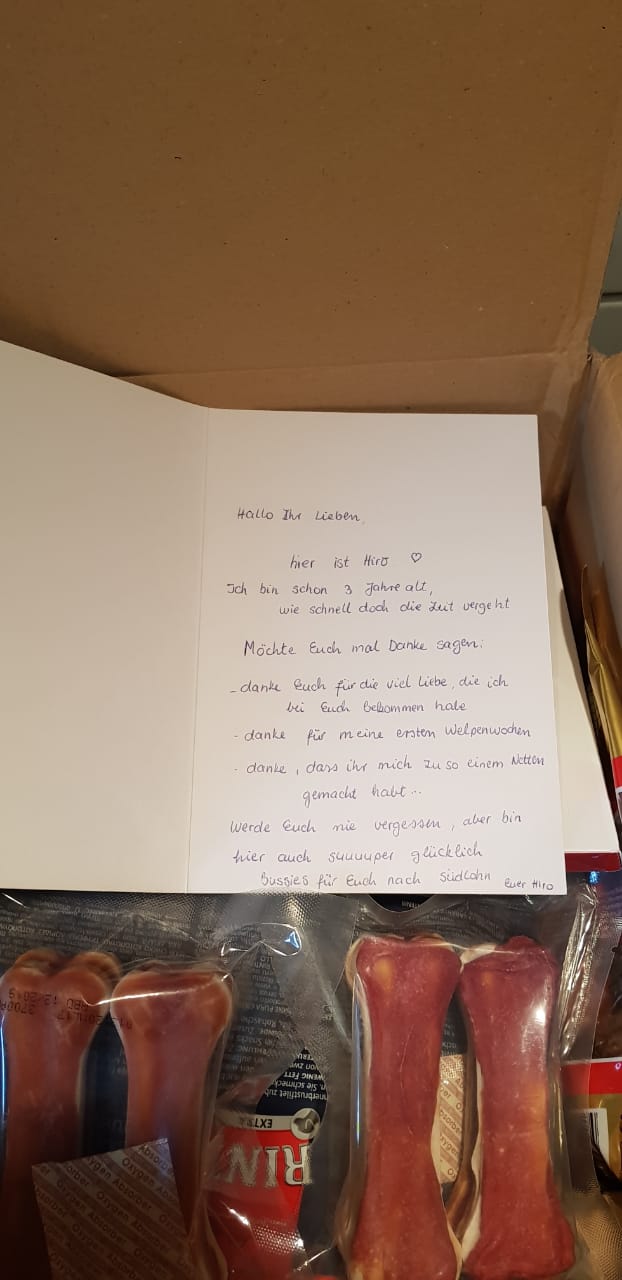 Hallo Ihr Lieben,
hier ist Hiro ♡
Ich bin schon 3 Jahre alt,
wie schnell doch die Zeit vergeht
Möchte Euch mal Danke sagen:
- danke Euch für die viel Liebe, die ich
bei Euch bekommen habe
- danke für meine ersten Welpenwochen
- danke, dass ihr mich zu so einem Netten
gemacht habt...
Werde Euch nie vergessen, aber bin
hier auch suuuuper glücklich
Bussies für Euch nach Südlohn Euer Hiro
WENIG FETT
EXTRA
RIN
Oxygen Absorber
Oxygen Absorber